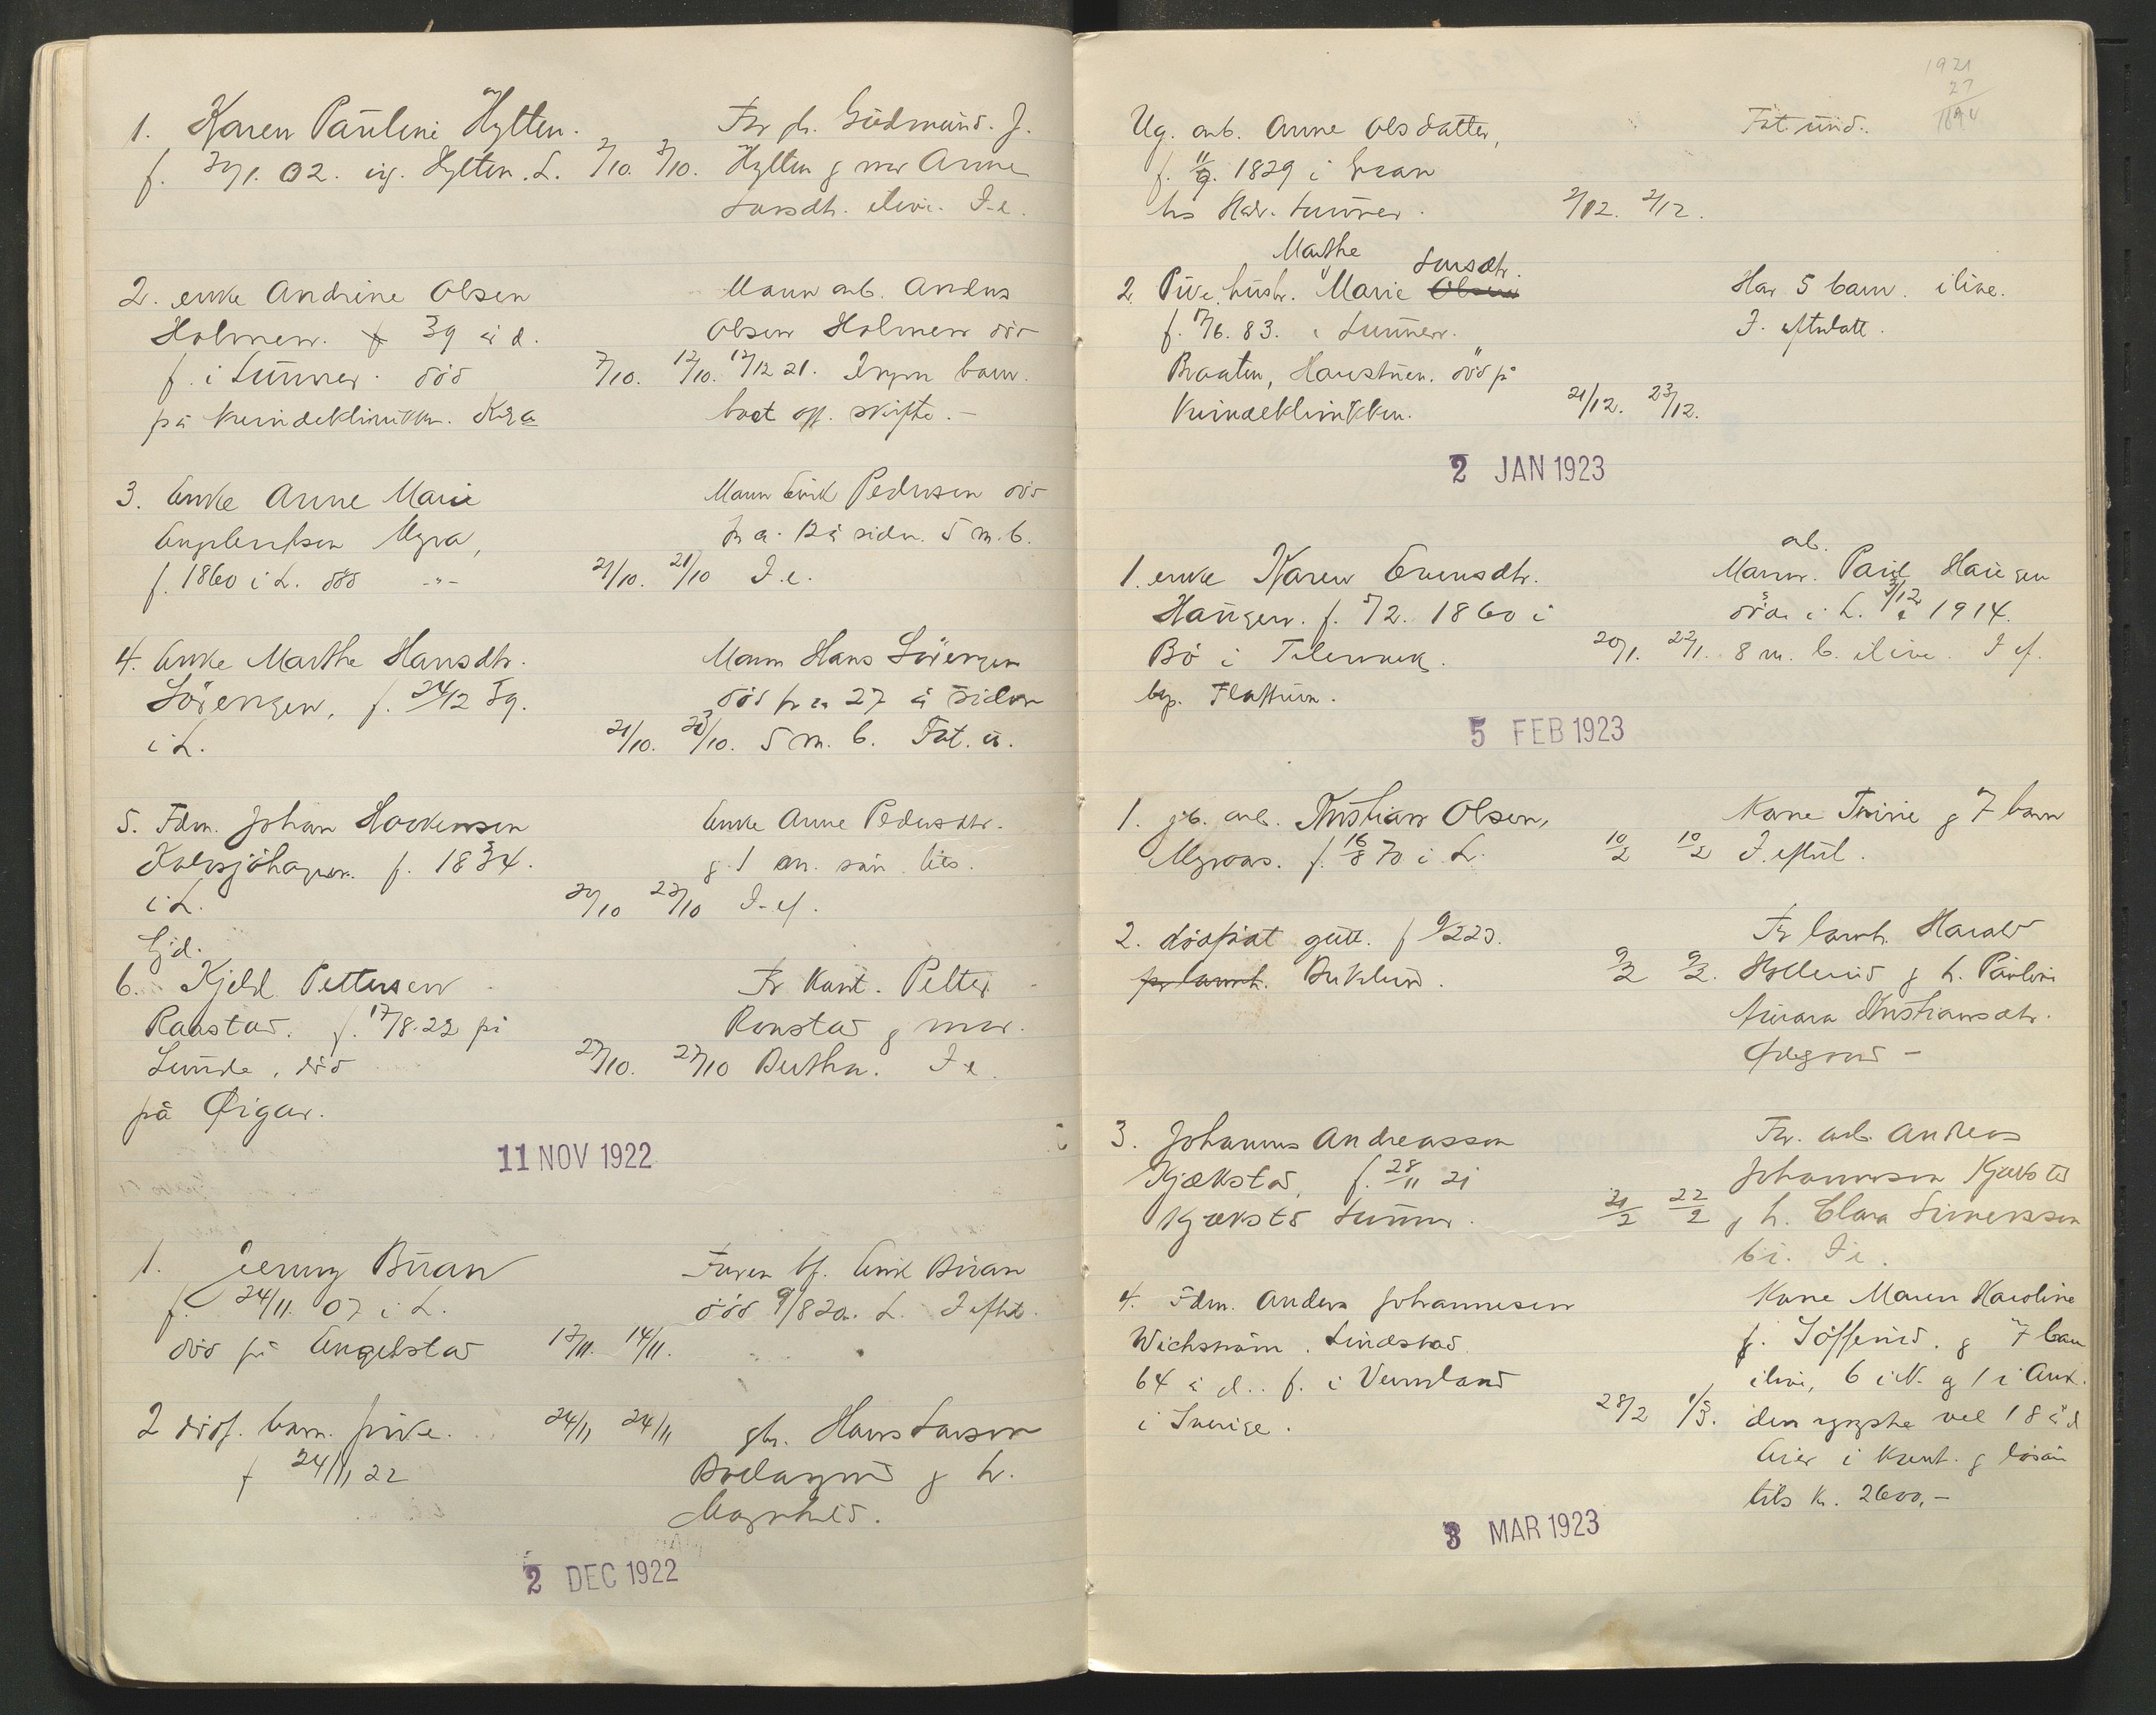 1. Karen Pauline Hytten.
f. 02. ug. Hytten. L. 2/10. 3/10.
Fr gb. Gudmund. J.
Hytten g mor Anne
Larsdtr. ilive. I.e.
2. enke Andrine Olsen
Holmen. 39 år d.
f. i Lunner. død
på Kvindeklinikken. Kra
7/10. 12/10.
Mann arb. Anders
Olsen Holmen død
17/12 21. Ingen barn.
boet off. skifte. -
3. Enke Anne Marie
Engebretsen Myra,
f. 1860 i L. død -"-
21/10. 21/10
Mann Eirik Pedersen død
for ca. 12 å siden. 5 m. b.
I.e.
4. Enke Marthe Hansdtr.
f. 24/12 59.
i L.
21/10. 23/10.
Mann Hans
død for ca 27 å siden
5 m. b. Fat. u.
5. Fdm. Johan Haakensen
Kalvsjøhagen. f. 1834.
i L.
Enke Anne Pedersdtr.
g. 1 m. søn
I. ef.
Gjd.
6. Kjeld Pettersen
Raastad. f. 17/8.22 på
Lunde, død
på Øigar.
27/10. 27/10
Fr Kant. Petter
Raastad g mor.
Berthea. I e.
11 NOV 1922
1. Jenny Buan
f. 24/11. 07 i L.
død på Engelstad 12/11. 14/11.
Faren tf. Eirik Buan
død 9/8 20. L. I eftl.
2 dødf. barn. pike. 24/11 24/11
f 24/11 22
gbr. Hans Larsen
g h.
Magnhild.
2 DEC 1922
1921
27
1894
Ug. arb. Anne Olsdatter,
f. 11/9. 1829 i Gran
hs Hadr. Lunner. 2/12. 2/12.
Fat. und.
Marthe Larsdtr.
2. Pive. hustr. Marie Olsen
f. 17/6. 83. i Lunner.
Braaten, Haustuen. død på
Kvindeklinikken. 21/12. 23/12.
Har 5 barn. ilive.
I. efterlatt.
2 JAN 1923
1. enke Karen Evensdtr.
Haugen. f. 5/2. 1860 i
Bø i Telemark.
bop. Flattum.
20/1. 22/1.
arb.
Mann. Paul Haugen
død i L. 3/12 1914.
8 m. b. ilive. I ef.
5 FEB 1923
1. jb. arb. Kristian Olsen,
Myraas. f. 16/8 70 i L.
10/2 10/2
Kone Trine g 7 barn
I. efterl.
2. dødfødt gutt. f 9/2 23.
for larmh.
9/2 9/2.
Fr larmh. Harald
g h. Pauline
Aurora Kristiansdtr.
Ødegaard -
3. Johannes Andreassen
Kjækstad, f. 28/11 21
Kjækstd Lunner. 21/2 22/2
Fr. arb. Andreas
Johannessen Kjæksta
g h. Clara Simensson
I e.
4. Fdm. Anders Johannesen
Wichstrøm. Lindstad.
64 å d. f. i Vermland
i Sverige. 28/2 1/3.
Kone Maren Karoline
f. g 7 barn
ilive, 6 i N. g 1 i Am.
den yngste vel 18 å d
Eier i kont. g løsøre
tils kr. 2600,-
3 MAR 1923